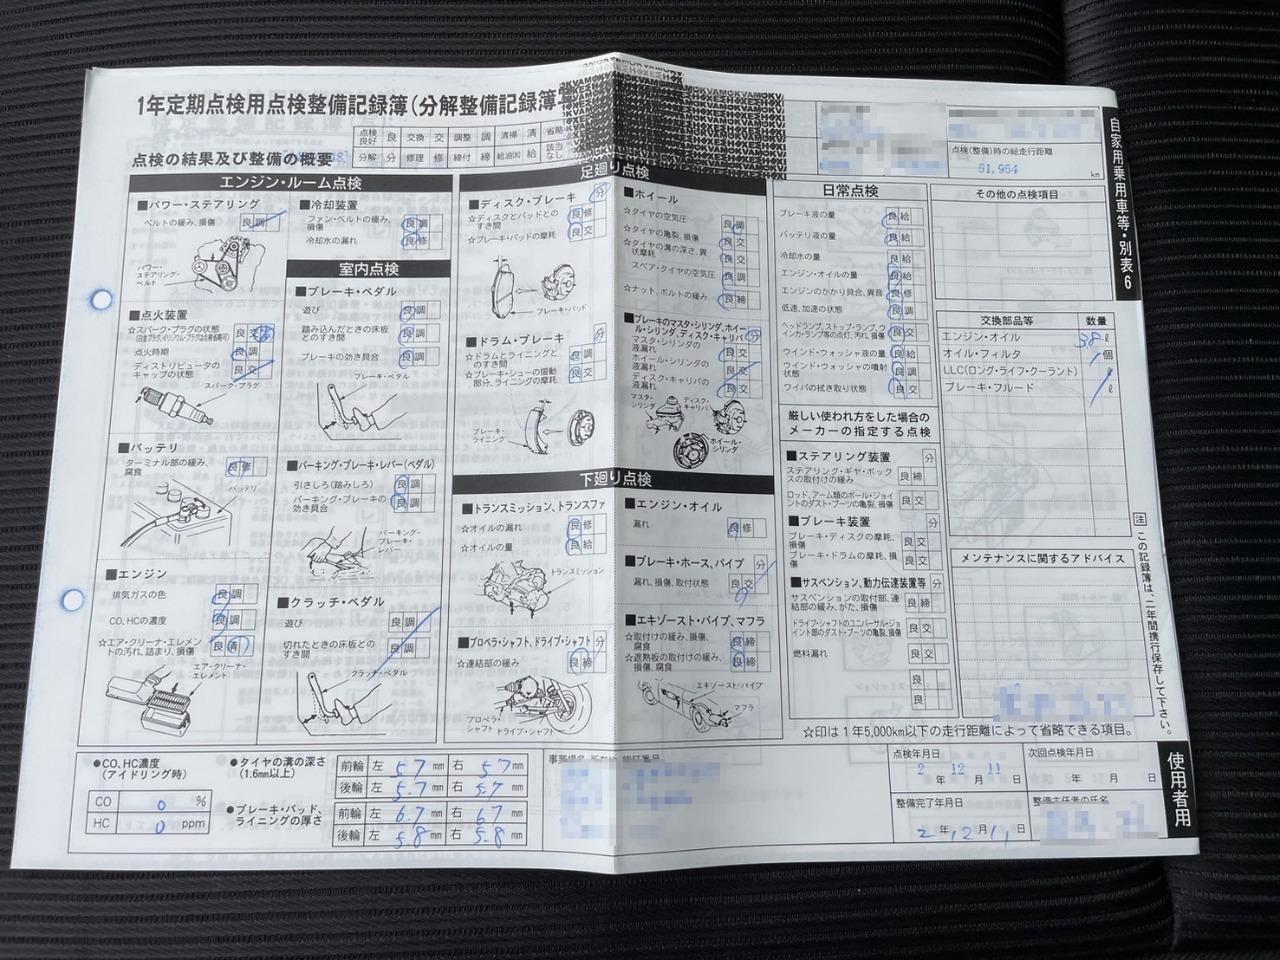 1年定期点検用点検整備記録簿(分解整備記録簿
点検良好 良 交換 交 調整 調 清掃 清 省略
分解 分 修理 修 締付 締 給油(水) 給 該当なし
点検(整備)時の総走行距離
51,954 km
自家用乗用車等・別表6
点検の結果及び整備の概要
エンジン・ルーム点検
■パワー・ステアリング
ベルトの緩み、損傷 良 調
パワー・ステアリング・ベルト
■点火装置
☆スパーク・プラグの状態 良 交
(白金プラグ、イリジウム・プラグは点検省略可)
点火時期 良 調
ディストリビュータのキャップの状態 良 交
スパーク・プラグ
■バッテリ
ターミナル部の緩み、腐食 良 修
バッテリ
■エンジン
排気ガスの色 良 調
CO、HCの濃度 良 調
☆エア・クリーナ・エレメントの汚れ、詰まり、損傷 良 清
エア・クリーナ・エレメント
■冷却装置
ファン・ベルトの緩み、損傷 良 調
冷却水の漏れ 良 修
室内点検
■ブレーキ・ペダル
遊び 良 調
踏み込んだときの床板とのすき間 良 調
ブレーキの効き具合 良 調
ブレーキ・ペダル
■パーキング・ブレーキ・レバー(ペダル)
引きしろ(踏みしろ) 良 調
パーキング・ブレーキの効き具合 良 調
パーキング・ブレーキ・レバー
■クラッチ・ペダル
遊び 良 調
切れたときの床板とのすき間 良 調
クラッチ・ペダル
足廻り点検
■ディスク・ブレーキ 分
☆ディスクとパッドとのすき間 良 修
☆ブレーキ・パッドの摩耗 良 交
ブレーキ・パッド
■ドラム・ブレーキ 分
☆ドラムとライニングとのすき間 良 調
☆ブレーキ・シューの摺動部分、ライニングの摩耗 良 交
ブレーキ・ライニング
■ホイール
☆タイヤの空気圧 良 調
☆タイヤの亀裂、損傷 良 交
☆タイヤの溝の深さ、異状摩耗 良 交
スペア・タイヤの空気圧 良 調
☆ナット、ボルトの緩み 良 締
■ブレーキのマスタ・シリンダ、ホイール・シリンダ、ディスク・キャリパ 分
マスタ・シリンダの液漏れ 良 交
ホイール・シリンダの液漏れ 良 交
ディスク・キャリパの液漏れ 良 交
マスタ・シリンダ
ディスク・キャリパ
ホイール・シリンダ
下廻り点検
■トランスミッション、トランスファ
☆オイルの漏れ 良 修
☆オイルの量 良 給
トランスミッション
■プロペラ・シャフト、ドライブ・シャフト 分
☆連結部の緩み 良 締
プロペラ・シャフト
ドライブ・シャフト
■エンジン・オイル
漏れ 良 修
■ブレーキ・ホース、パイプ 分
漏れ、損傷、取付状態 良 交
■エキゾースト・パイプ、マフラ
☆取付けの緩み、損傷、腐食 良 締
☆遮熱板の取付けの緩み、損傷、腐食 良 締
エキゾースト・パイプ
マフラ
日常点検
ブレーキ液の量 良 給
バッテリ液の量 良 給
冷却水の量 良 給
エンジン・オイルの量 良 給
エンジンのかかり具合、異音 良 修
低速、加速の状態 良 調
ヘッドランプ、ストップ・ランプ、ウインカ・ランプ等の点灯、汚れ、損傷 良 交
ウインド・ウォッシャ液の量 良 給
ウインド・ウォッシャの噴射状態 良 調
ワイパの拭き取り状態 良 交
厳しい使われ方をした場合のメーカーの指定する点検
■ステアリング装置 分
ステアリング・ギヤ・ボックスの取付けの緩み 良 締
ロッド、アーム類のボール・ジョイントのダスト・ブーツの亀裂、損傷 良 交
■ブレーキ装置 分
ブレーキ・ディスクの摩耗、損傷 良 交
ブレーキ・ドラムの摩耗、損傷 良 交
■サスペンション、動力伝達装置等 分
サスペンションの取付部、連結部の緩み、がた、損傷 良 締
ドライブ・シャフトのユニバーサル・ジョイント部のダスト・ブーツの亀裂、損傷 良 交
燃料漏れ 良 交
良
良
その他の点検項目
交換部品等 数量
エンジン・オイル 3.8 ℓ
オイル・フィルタ 1 個
LLC(ロング・ライフ・クーラント) ℓ
ブレーキ・フルード ℓ
メンテナンスに関するアドバイス
注 この記録簿は、二年間携行保存して下さい。
☆印は1年5,000km以下の走行距離によって省略できる項目。
●CO、HC濃度(アイドリング時)
CO 0 %
HC 0 ppm
●タイヤの溝の深さ(1.6mm以上)
前輪 左 5.7 mm 右 5.7 mm
後輪 左 5.7 mm 右 5.7 mm
●ブレーキ・パッド、ライニングの厚さ
前輪 左 6.7 mm 右 6.7 mm
後輪 左 5.8 mm 右 5.8 mm
点検年月日
2年12月11日
次回点検年月日
年 月 日
整備完了年月日
2年12月11日
整備主任者の氏名
使用者用